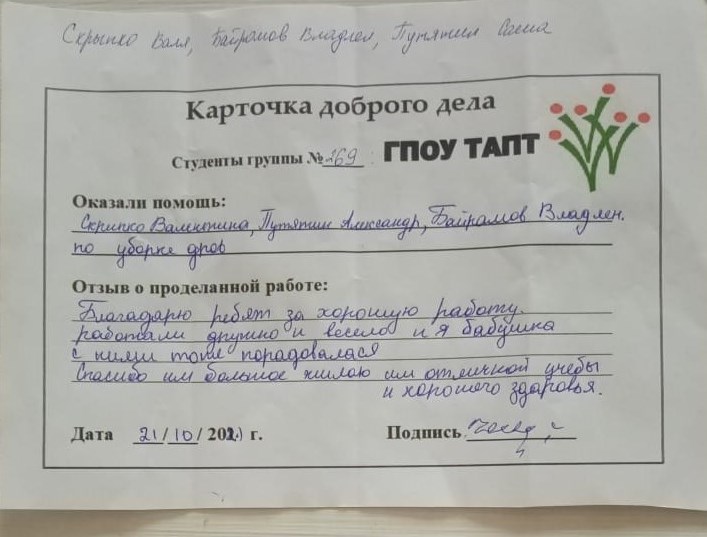 Скрыпко Валя, Байрамов Владлен, Путятин Саша
Карточка доброго дела
Студенты группы № 269 ГПОУ ТАПТ
Оказали помощь:
Скрипко Валентина, Путятин Александр, Байрамов Владлен.
по уборке дров
Отзыв о проделанной работе:
Благадарю ребят за хорошую работу.
работали дружно и весело и я бабушка
с ними тоже порадовалася
Спасибо им большое жилаю им отличной учебы
и хорошого здаровья.
Дата 21/10/ 202 г. Подпись